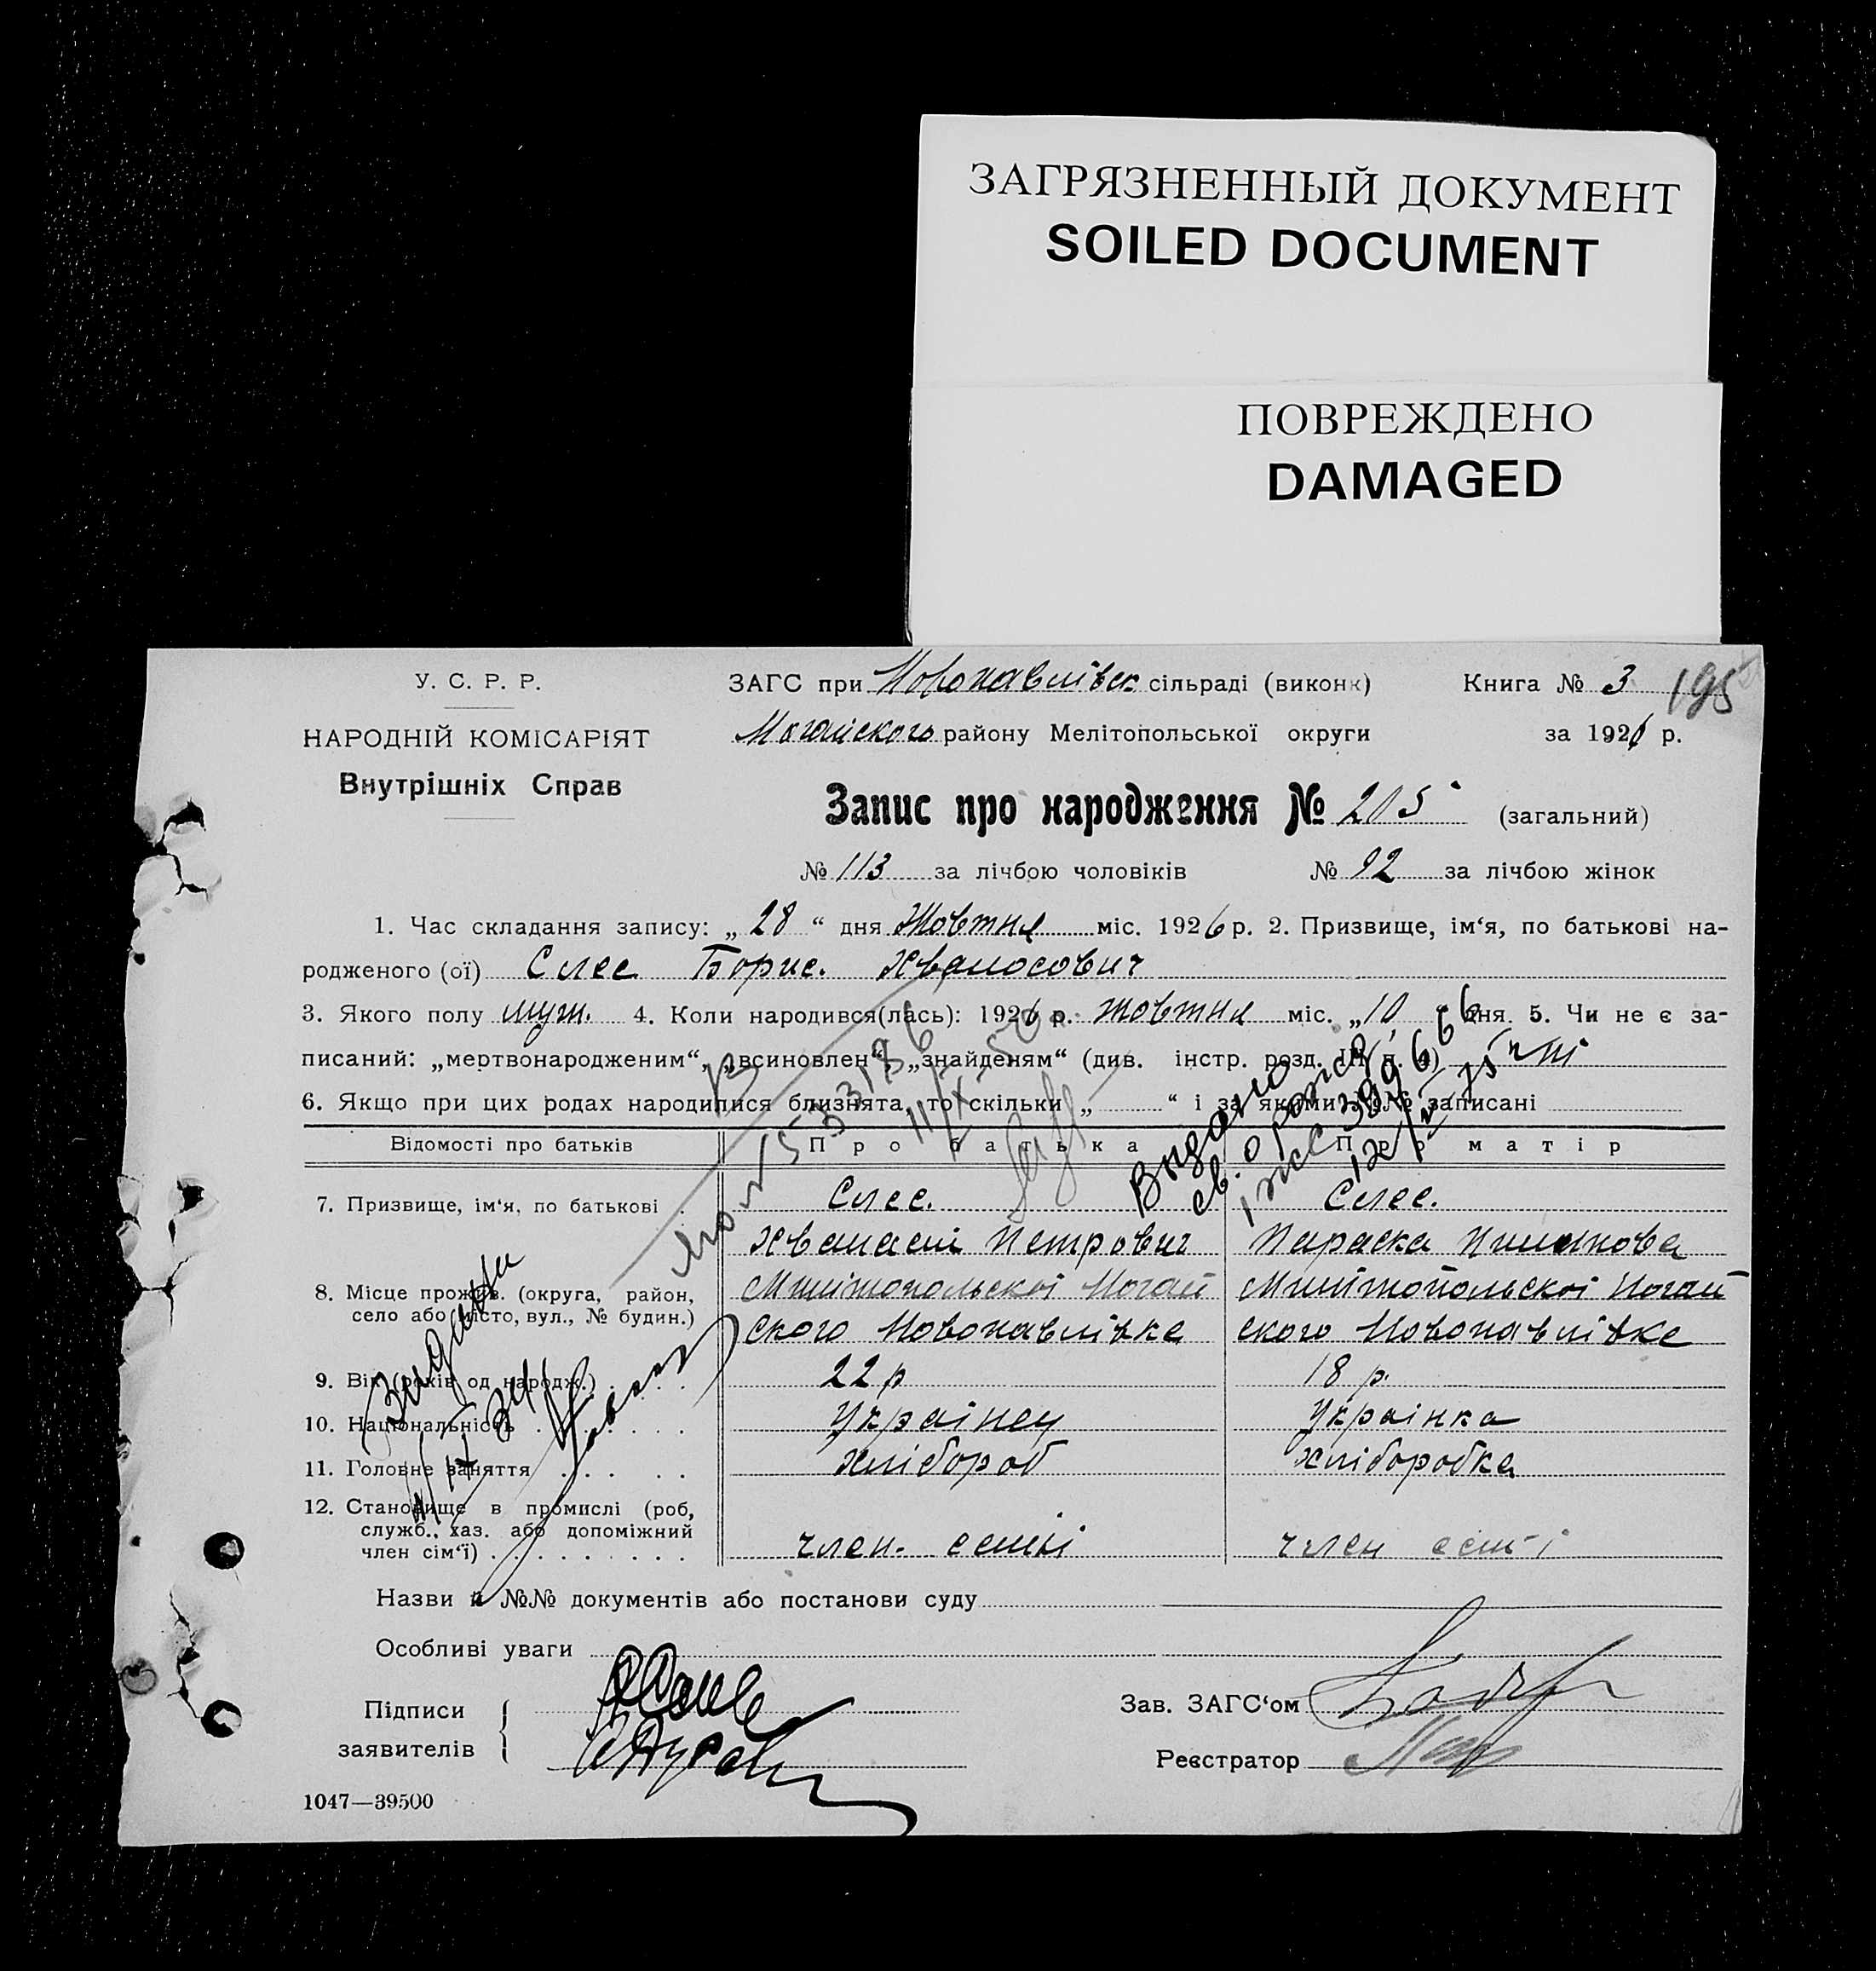 ЗАГРЯЗНЕННЫЙ ДОКУМЕНТ
SOILED DOCUMENT
ПОВРЕЖДЕНО
DAMAGED
У. С. Р. Р.
НАРОДНІЙ КОМІСАРІЯТ
Внутрішніх Справ
ЗАГС при Новопавлівск сільраді (виконк) Книга № 3 195
Ногайского району Мелітопольської округи за 1926 р.
Запис про народження № 205 (загальний)
№ 113 за лічбою чоловіків № 92 за лічбою жінок
1. Час складання запису: „ 28 “ дня Жовтня міс. 1926 р. 2. Призвище, ім‘я, по батькові на-
родженого (ої) Слес Борис. Хваносович
3. Якого полу муж. 4. Коли народився(лась): 1926 р. жовтня міс. „ 10 “ дня. 5. Чи не є за-
писаний: „мертвонародженим“, „всиновлен“, „знайденям“ (див. інстр. розд. III п. 6) ні
6. Якщо при цих родах народилися близнята, то скільки „ “ і за якими №№ записані
Відомості про батьків Про батька Про матір
7. Призвище, ім‘я, по батькові Слес. Слес.
Хванасій Петрович Параска
8. Місце прожив. (округа, район, село або місто, вул., № будин.) Милітопольскої Ногай Милітопольскої Ногай
ского Новопавлівка ского Новопавлівке
9. Вік (років од народж.) 22 р 18 р.
10. Національність Украінец Украінка
11. Головне заняття хлібороб хліборобка
12. Становище в промислі (роб, служб., хаз. або допоміжний член сім‘ї) член. семіі член семіі
Назви й №№ документів або постанови суду
Особливі уваги
Підписи
заявителів
Зав. ЗАГС‘ом
Реєстратор
1047—39500
Видано
св. о рожд.